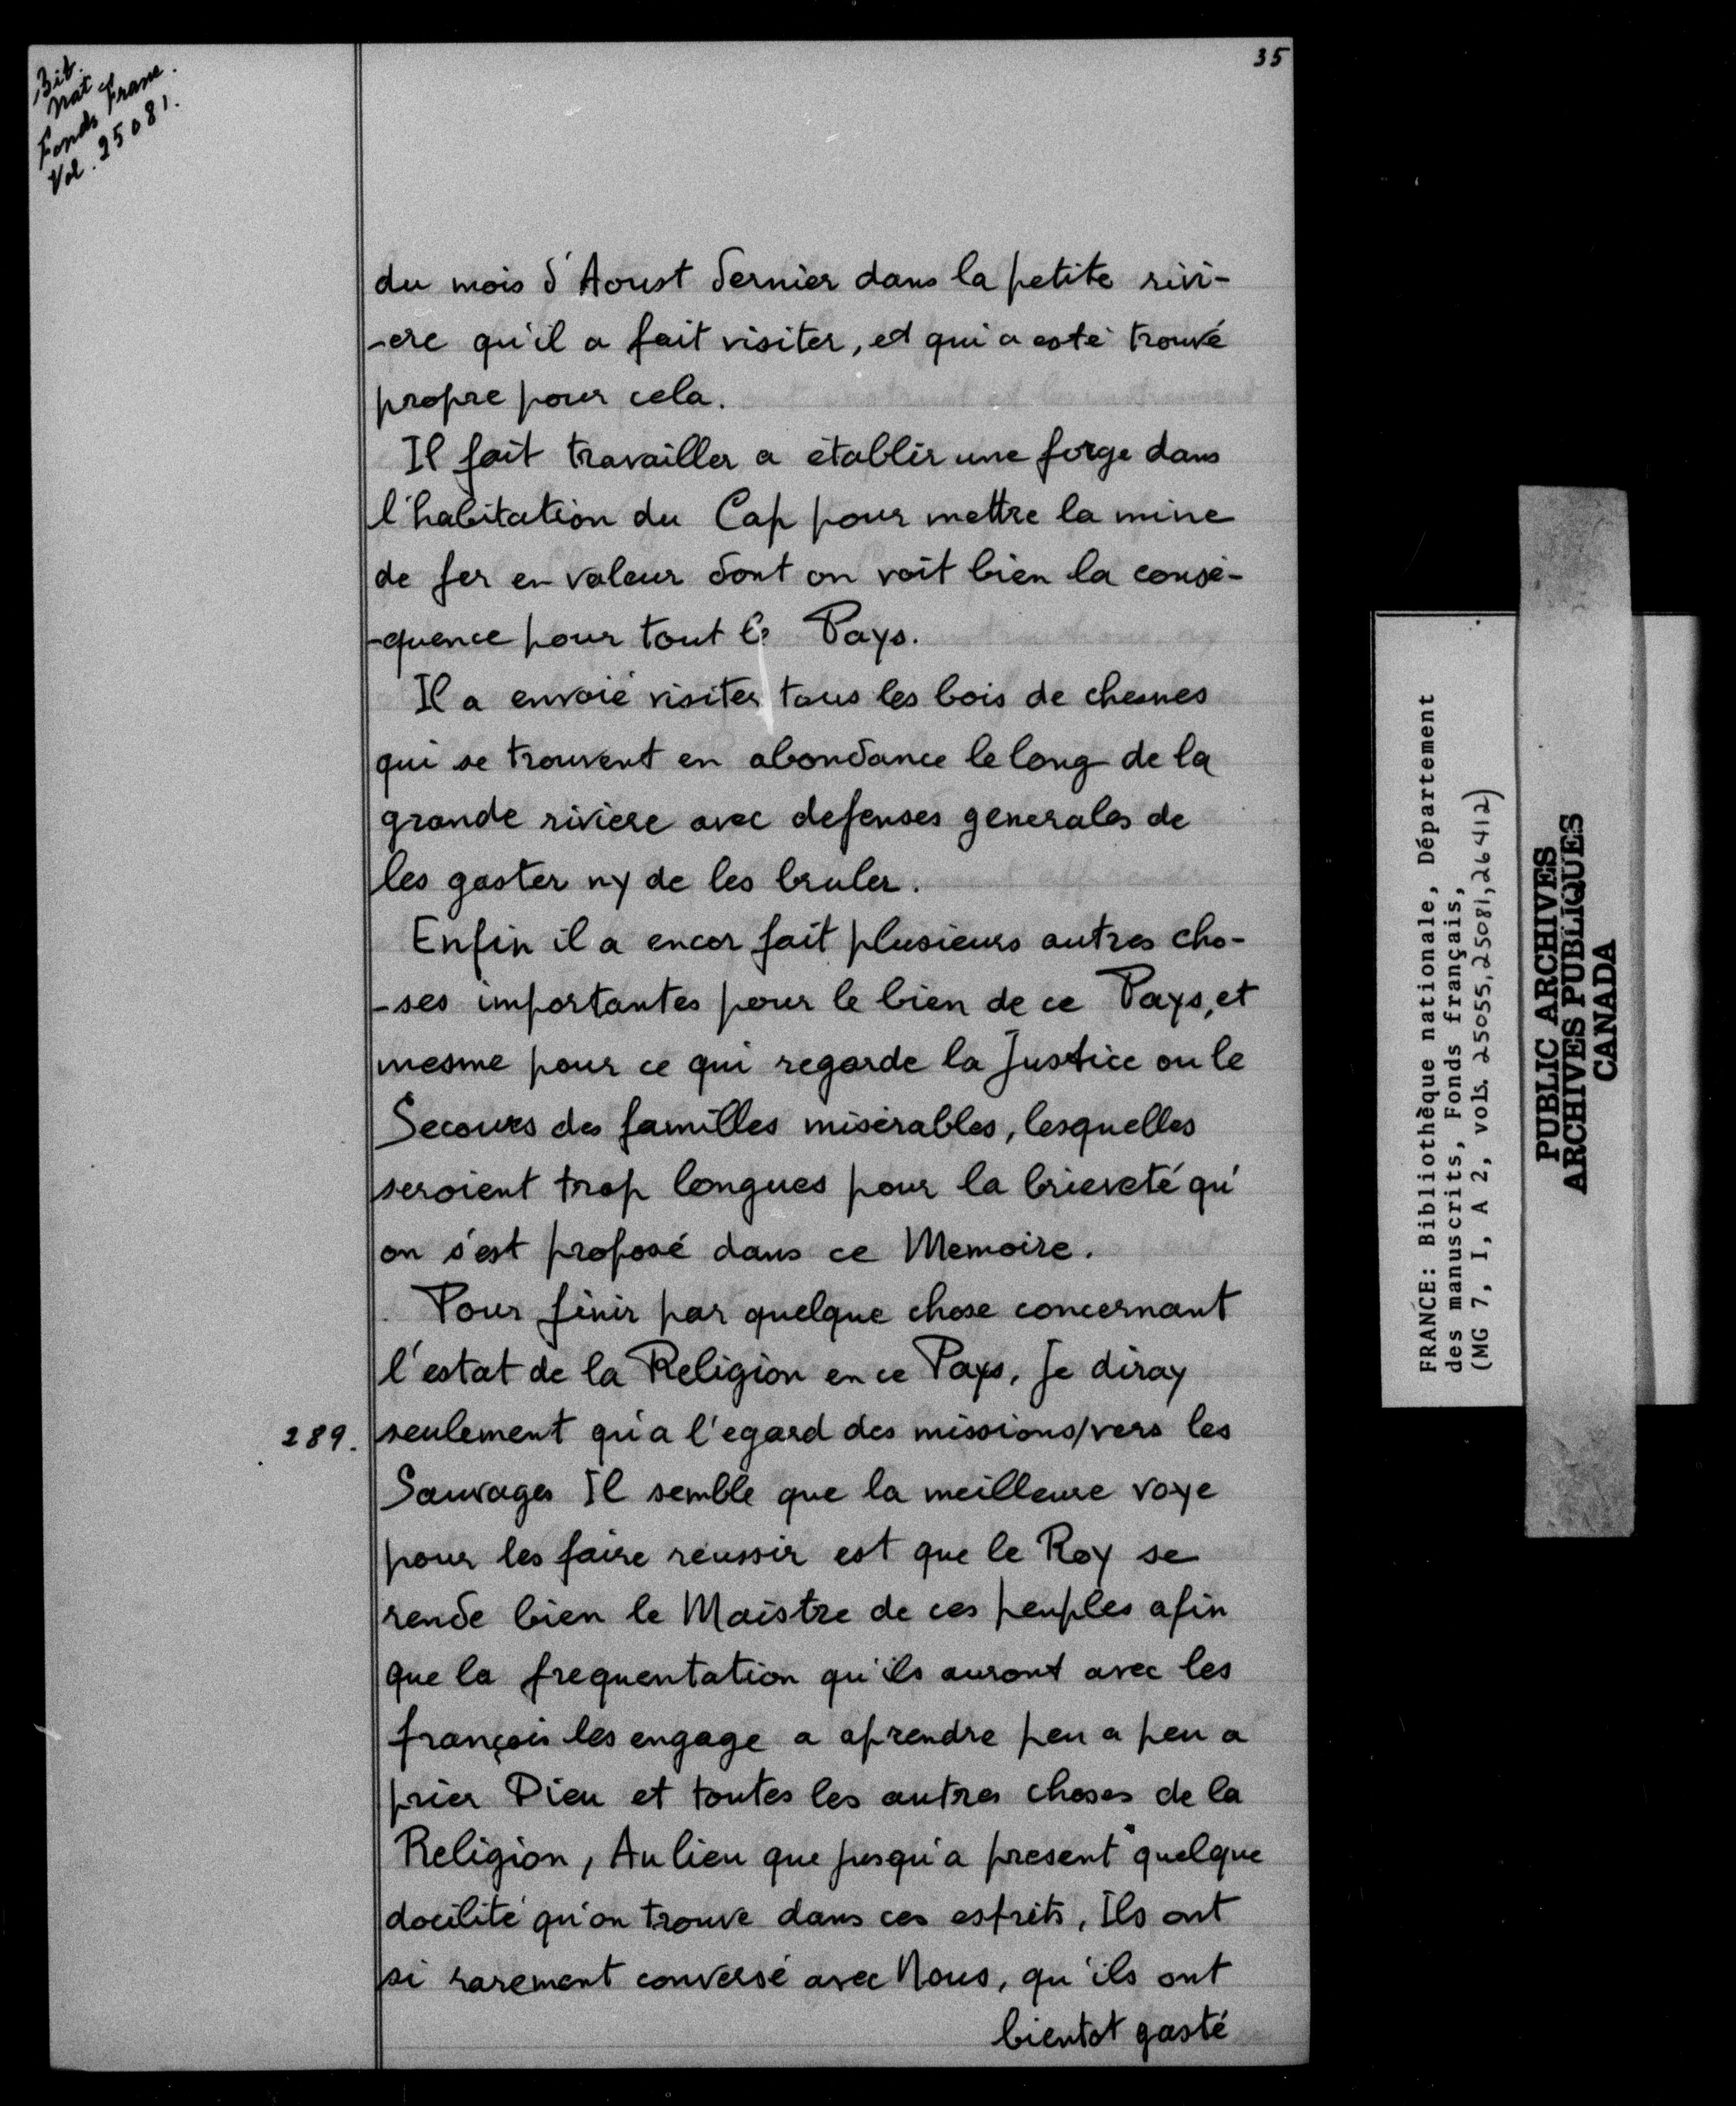 35
Bib.
Natle
Fonds Franc.
Vol. 25081.
du mois d'Aoust dernier dans la petite rivi-
-ere qu'il a fait visiter, et qui a esté trouvé
propre pour cela.
Il fait travailler a établir une forge dans
l'habitation du Cap pour mettre la mine
de fer en valeur dont on voit bien la consé-
-quence pour tout le Pays.
Il a envoié visiter tous les bois de chesnes
qui se trouvent en abondance le long de la
grande riviere avec defenses generales de
les gaster ny de les bruler.
Enfin il a encor fait plusieurs autres cho-
-ses importantes pour le bien de ce Pays, et
mesme pour ce qui regarde la Justice ou le
Secours des familles misérables, lesquelles
seroient trop longues pour la brieveté qu'
on s'est proposé dans ce Memoire.
Pour finir par quelque chose concernant
l'estat de la Religion en ce Pays, Je diray
289. seulement qu'a l'egard des missions/vers les
Sauvages Il semble que la meilleure voye
pour les faire réussir est que le Roy se
rende bien le Maistre de ces peuples afin
que la frequentation qu'ils auront avec les
françois les engage a aprendre peu a peu a
prier Dieu et toutes les autres choses de la
Religion, Au lieu que jusqu'a present quelque
docilité qu'on trouve dans ces esprits, Ils ont
si rarement conversé avec Nous, qu'ils ont
bientot gasté
FRANCE: Bibliothèque nationale, Département
des manuscrits, Fonds français,
(MG 7, I, A 2, vols. 25055, 25081, 26412)
PUBLIC ARCHIVES
ARCHIVES PUBLIQUES
CANADA